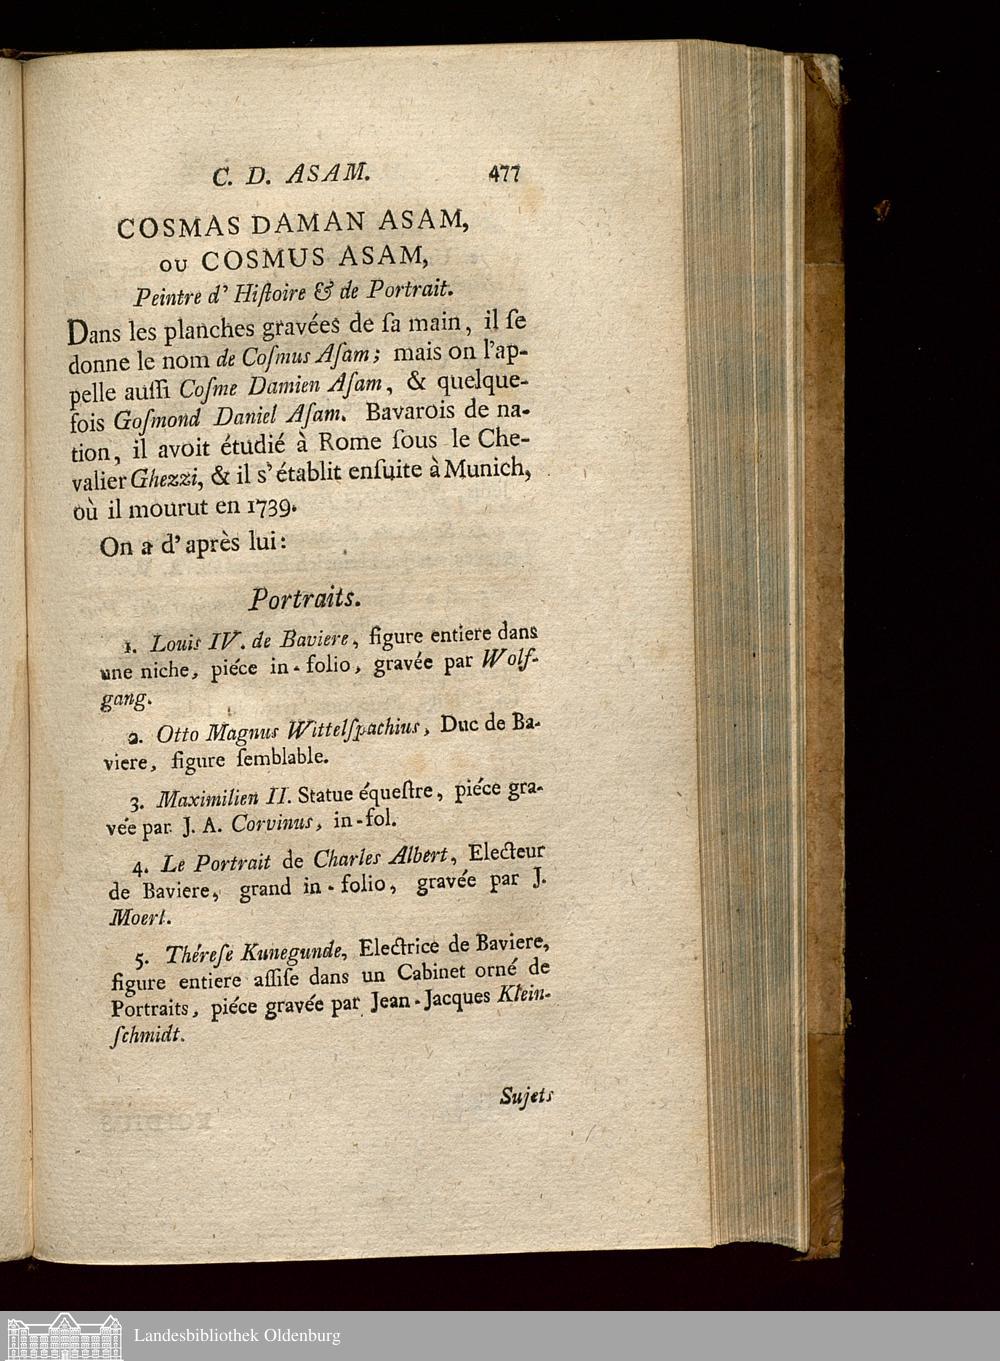 C. D. ASAM. 477
COSMAS DAMAN ASAM,
OU COSMUS ASAM,
Peintre d' Hiſtoire & de Portrait.
Dans les planches gravées de ſa main, il ſe
donne le nom de Coſmus Aſam; mais on l'ap-
pelle auſſi Coſme Damien Aſam, & quelque-
fois Goſmond Daniel Aſam. Bavarois de na-
tion, il avoit étudié à Rome ſous le Che-
valier Ghezzi, & il s'établit enſuite à Munich,
où il mourut en 1739.
On a d'après lui:
Portraits.
1. Louis IV. de Baviere, figure entiere dans
une niche, piéce in-folio, gravée par Wolf-
gang.
2. Otto Magnus Wittelſpachius, Duc de Ba-
viere, figure ſemblable.
3. Maximilien II. Statue équeſtre, piéce gra-
vée par J. A. Corvinus, in-fol.
4. Le Portrait de Charles Albert, Electeur
de Baviere, grand in-folio, gravée par J.
Moerl.
5. Théreſe Kunegunde, Electrice de Baviere,
figure entiere aſſiſe dans un Cabinet orné de
Portraits, piéce gravée par Jean-Jacques Klein-
ſchmidt.
Sujets
Landesbibliothek Oldenburg